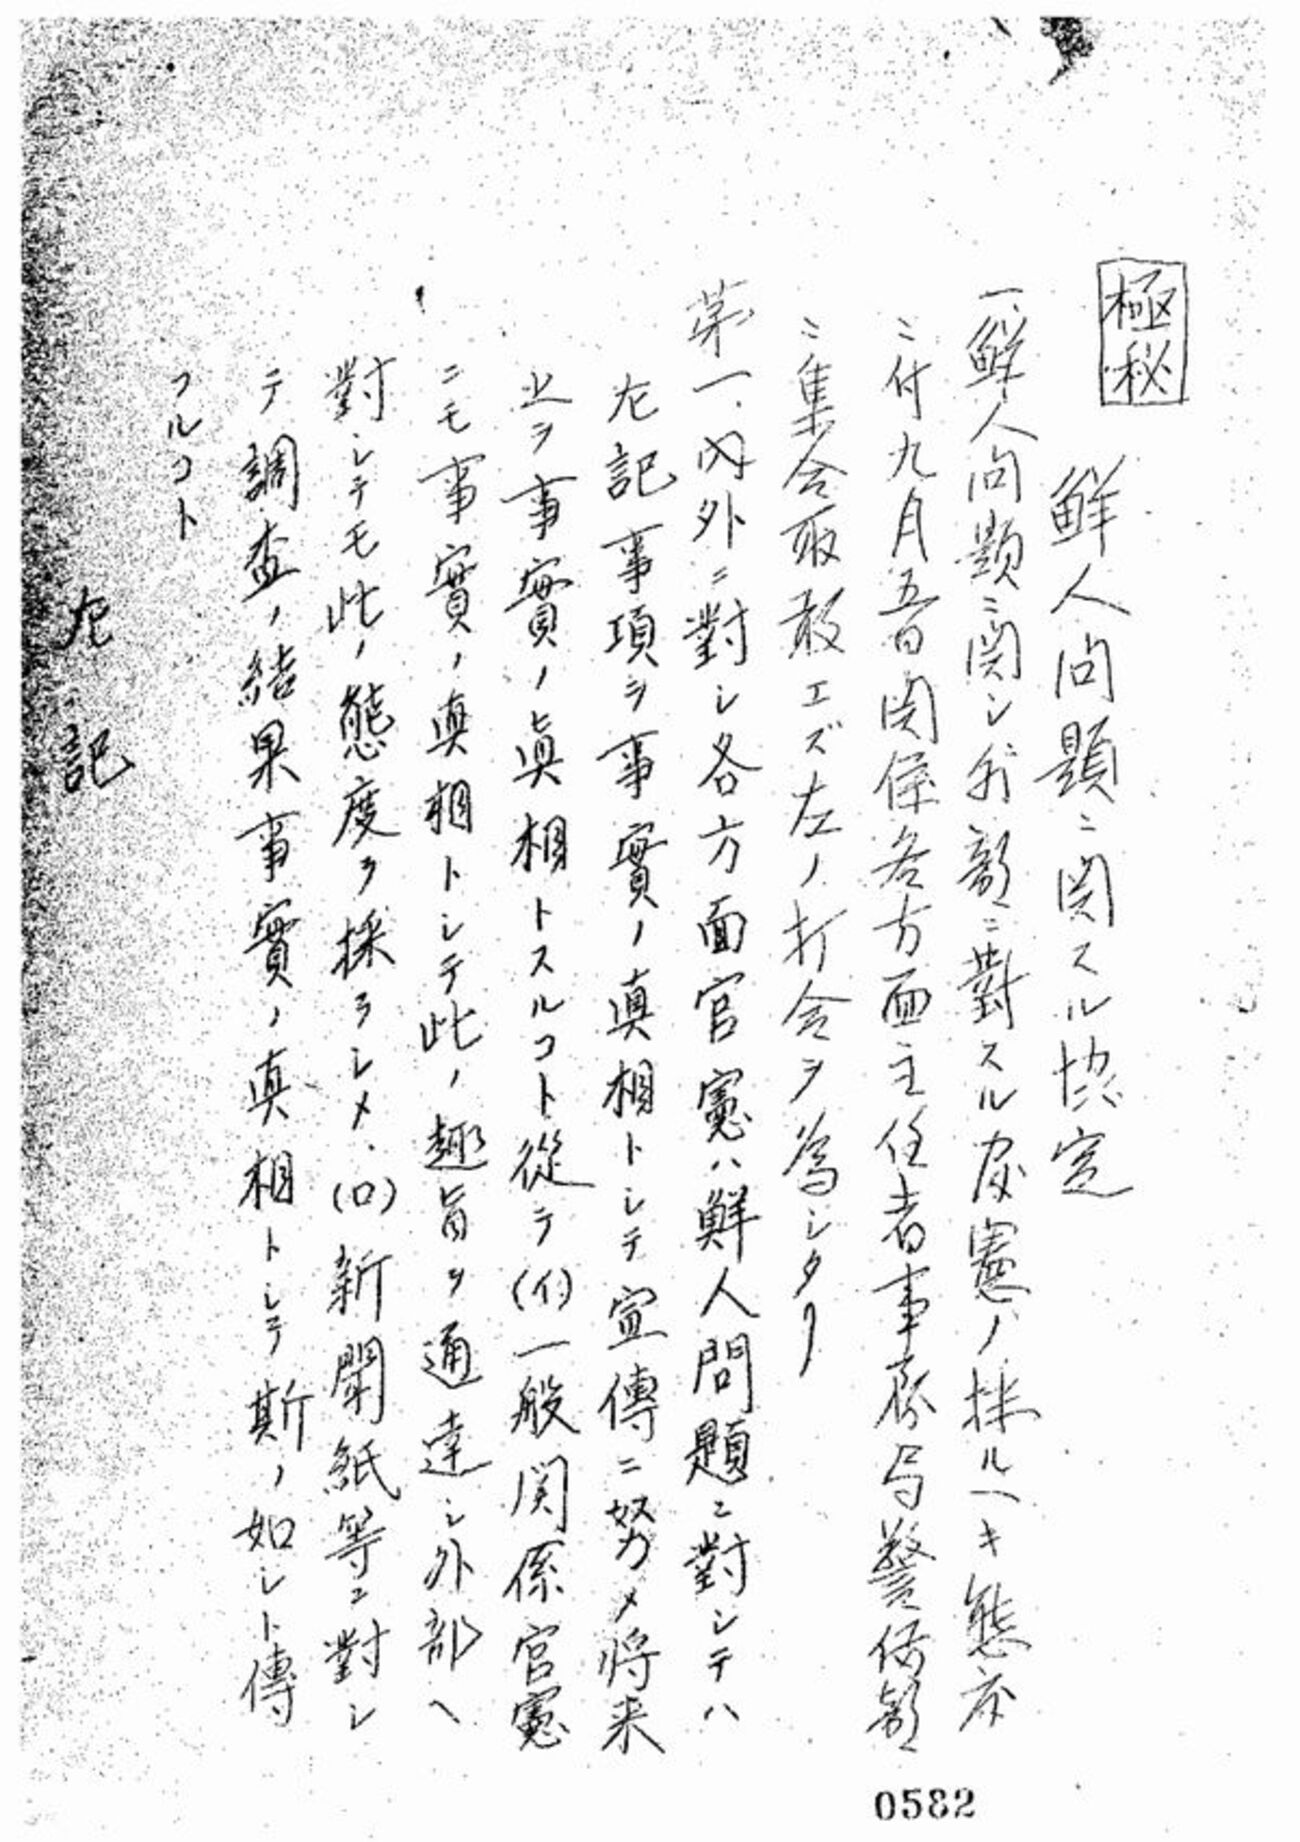 極秘
鮮人問題ニ関スル協定
一、鮮人問題ニ関シ外部ニ對スル官憲ノ採ルヘキ態度
ニ付九月五日関係各方面主任者事務局警備部
ニ集合取敢エズ左ノ打合ヲ為シタリ
第一、内外ニ對シ各方面官憲ハ鮮人問題ニ對シテハ
左記事項ヲ事實ノ真相トシテ宣傳ニ努メ将来
之ヲ事實ノ眞相トスルコト従テ(イ)一般関係官憲
ニモ事實ノ真相トシテ此ノ趣旨ヲ通達シ外部ヘ
對シテモ此ノ態度ヲ採ラシメ、(ロ)新聞紙等ニ對シ
テ調査ノ結果事實ノ真相トシテ斯ノ如シト傳
フルコト
左記
0582